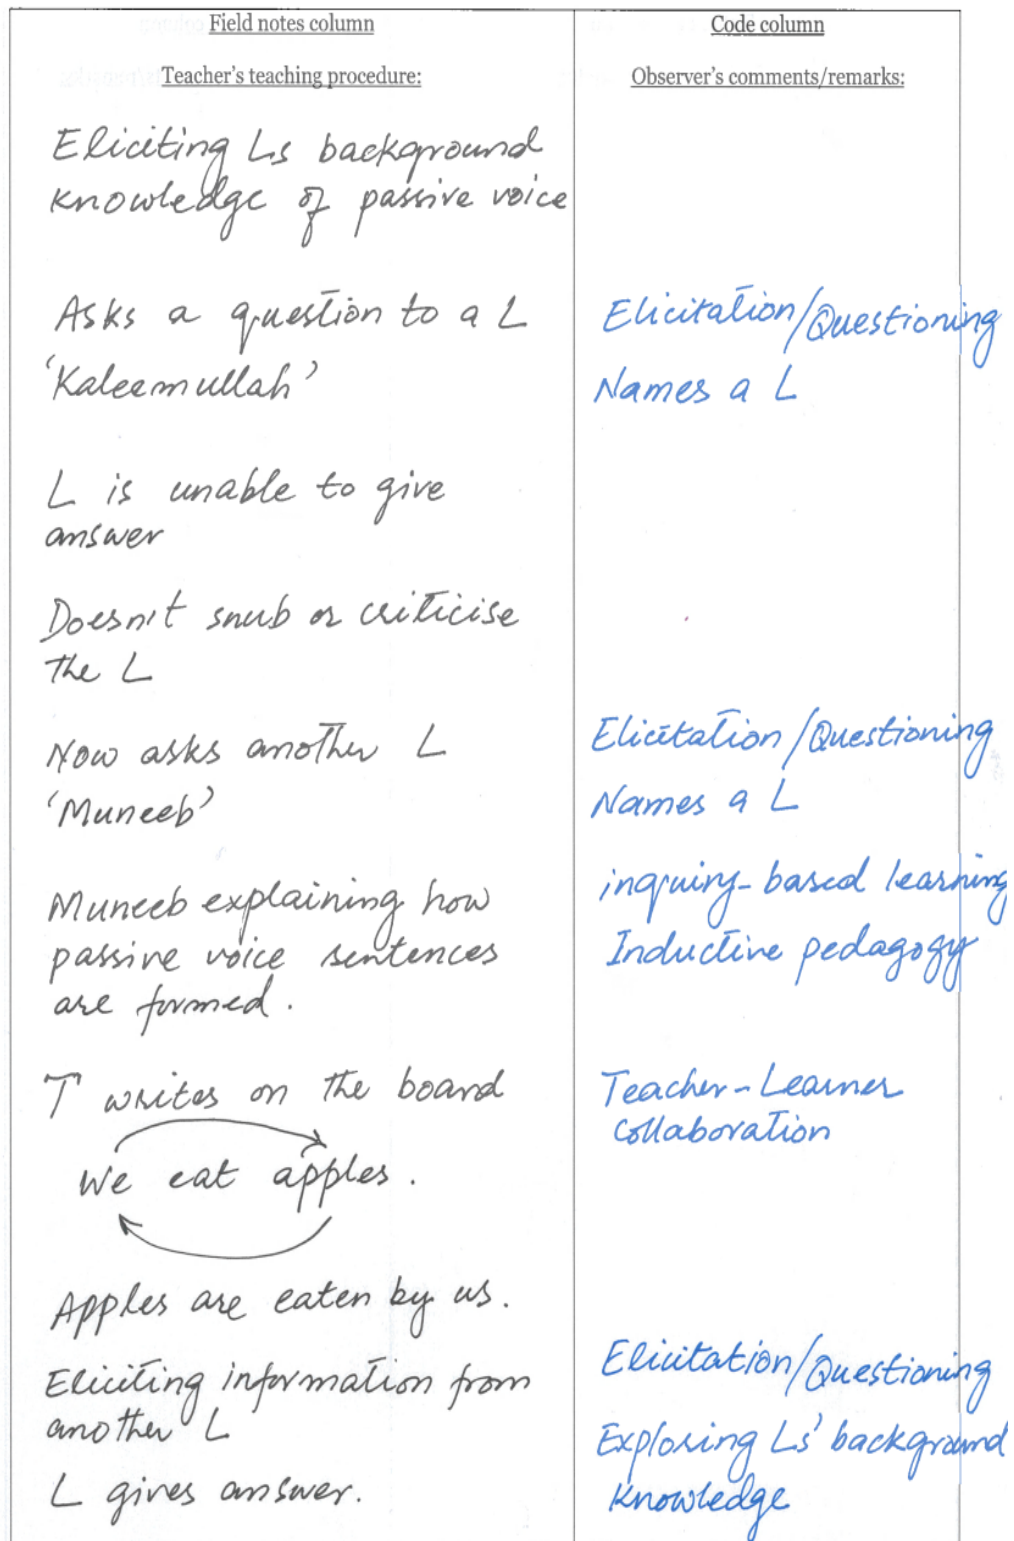 Field notes column
Teacher's teaching procedure:
Eliciting Ls background
knowledge of passive voice
Asks a question to a L
'Kaleemullah'
L is unable to give
answer
Doesn't snub or criticise
the L
Now asks another L
'Muneeb'
Muneeb explaining how
passive voice sentences
are formed.
T writes on the board
We eat apples.
Apples are eaten by us.
Eliciting information from
another L
L gives answer.
Code column
Observer's comments/remarks:
Elicitation/Questioning
Names a L
Elicitation/Questioning
Names a L
inquiry-based learning
Inductive pedagogy
Teacher-Learner
Collaboration
Elicitation/Questioning
Exploring Ls' background
knowledge